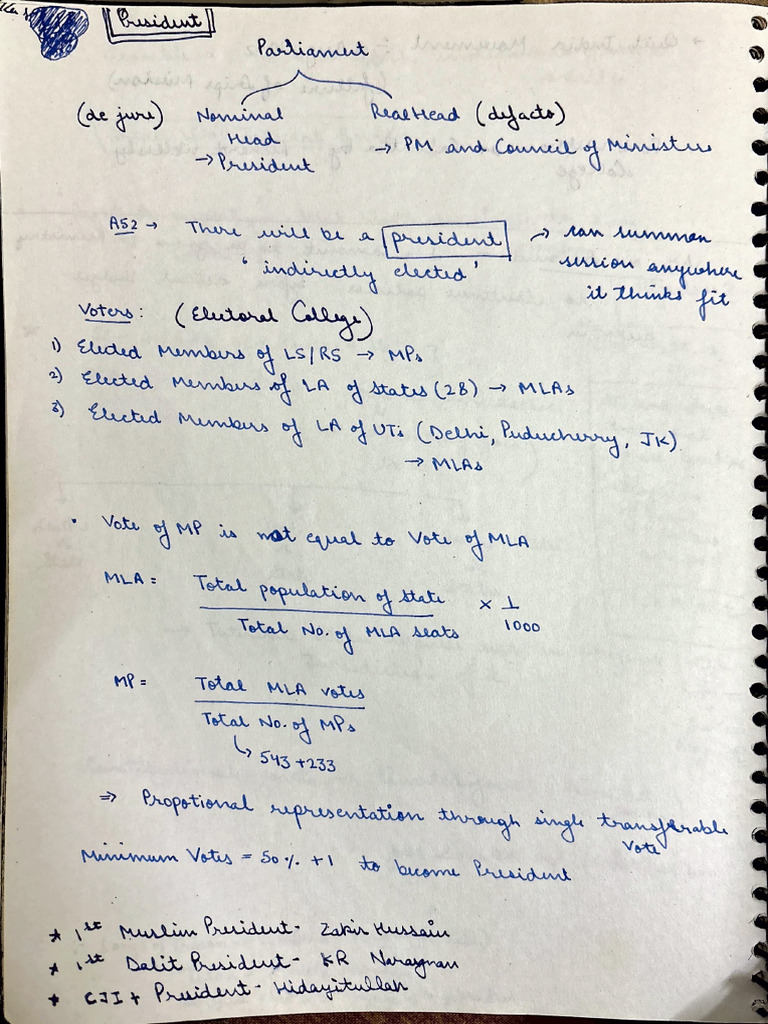 President
Parliament
(de jure) Nominal Head → President
Real Head (defacto) → PM and Council of Ministers
A52 → There will be a president → can summon
"indirectly elected" session anywhere
it thinks fit
Voters: (Electoral College)
1) Elected Members of LS/RS → MPs
2) Elected Members of LA of states (28) → MLAs
3) Elected Members of LA of UTs (Delhi, Puducherry, JK)
→ MLAs
• Vote of MP is not equal to Vote of MLA
MLA = Total population of state × 1
Total No. of MLA seats 1000
MP = Total MLA votes
Total No. of MPs
↳ 543+233
⇒ Propotional representation through single transferable
Vote
Minimum Votes = 50% +1 to become President
* 1st Muslim President - Zakir Hussain
* 1st Dalit President - KR Naraynan
* CJI + President - Hidayitullah